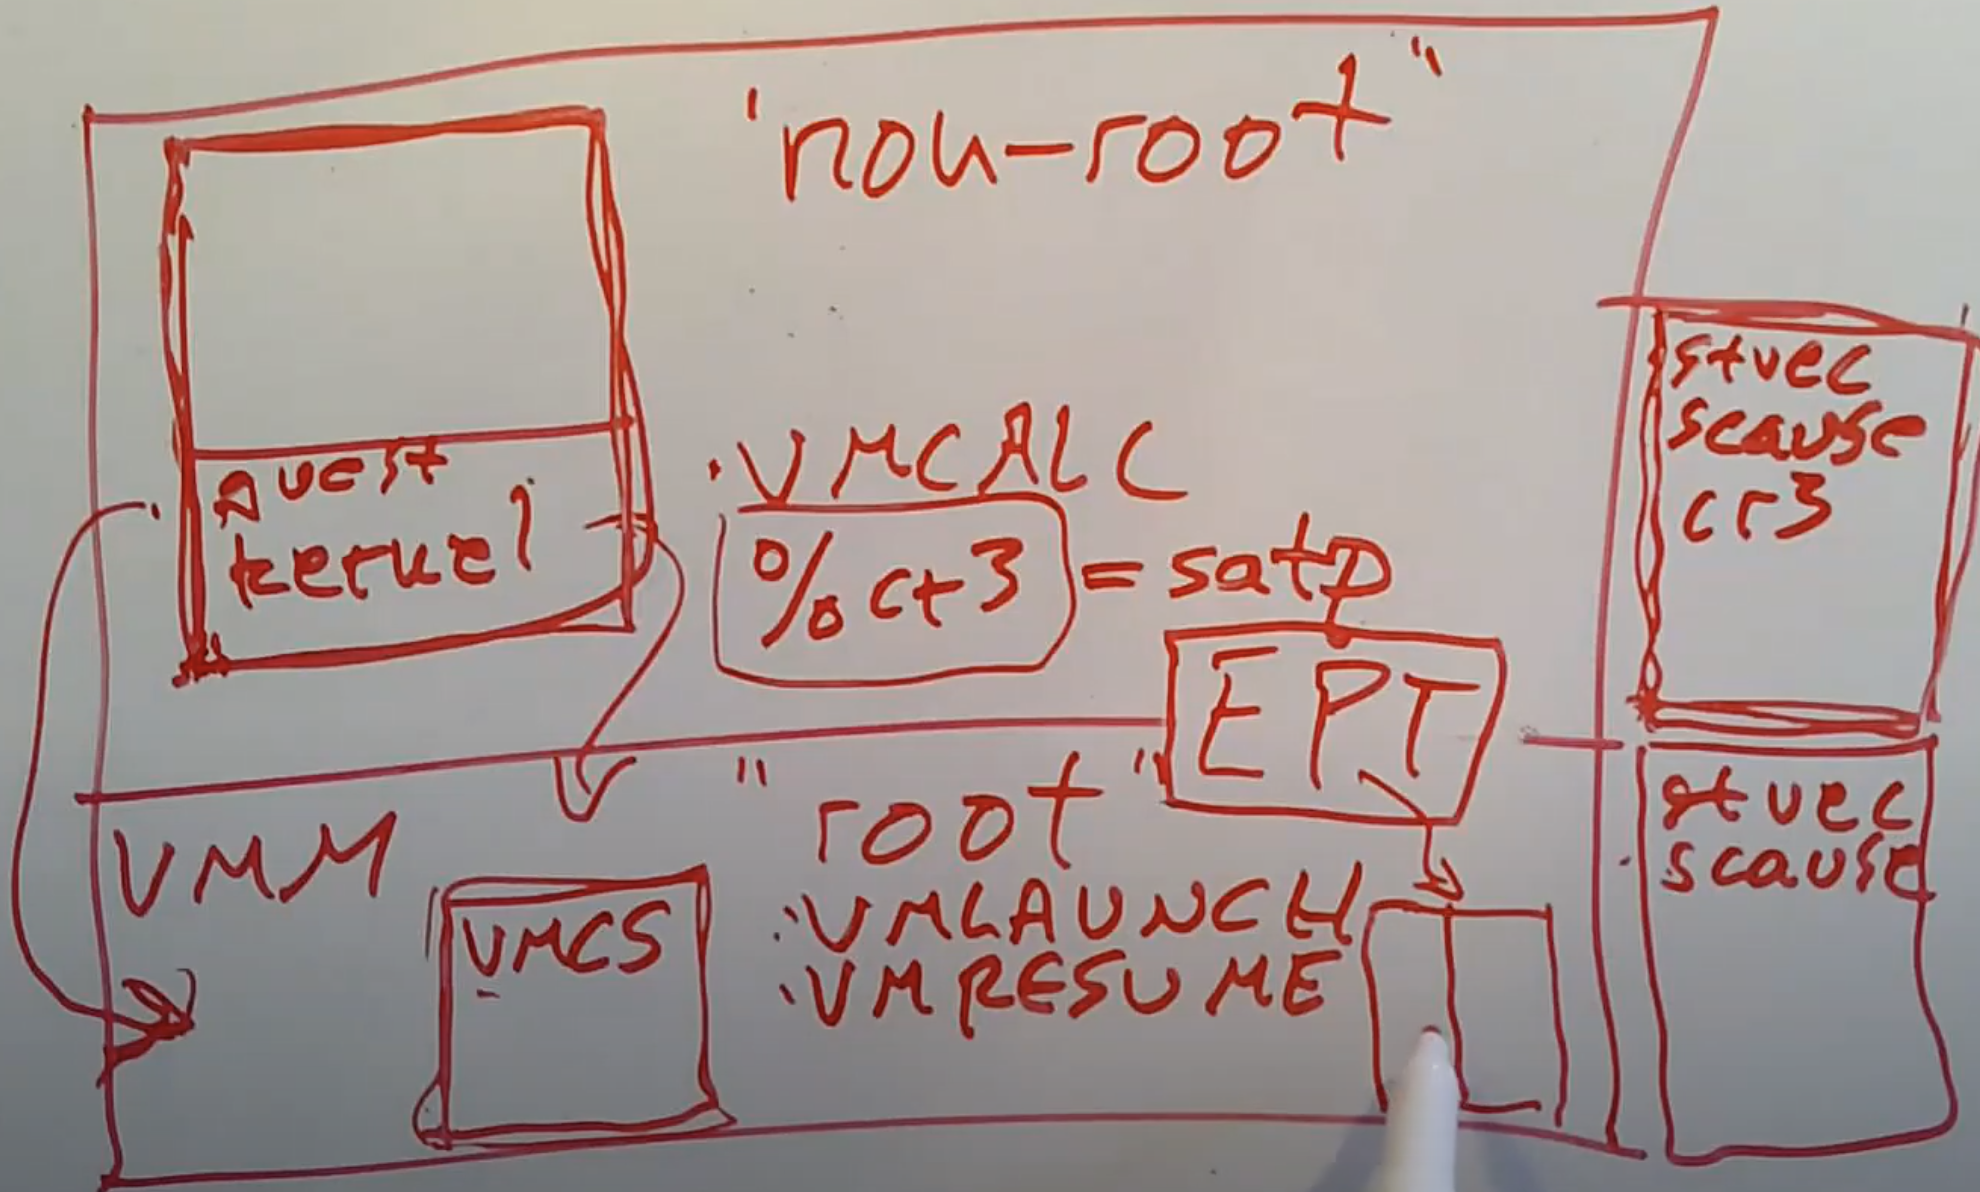 "non-root"
guest
kernel
VMCALL
%cr3 = satp
EPT
stvec
scause
cr3
VMM
"root"
VMCS
VMLAUNCH
VMRESUME
stvec
scause